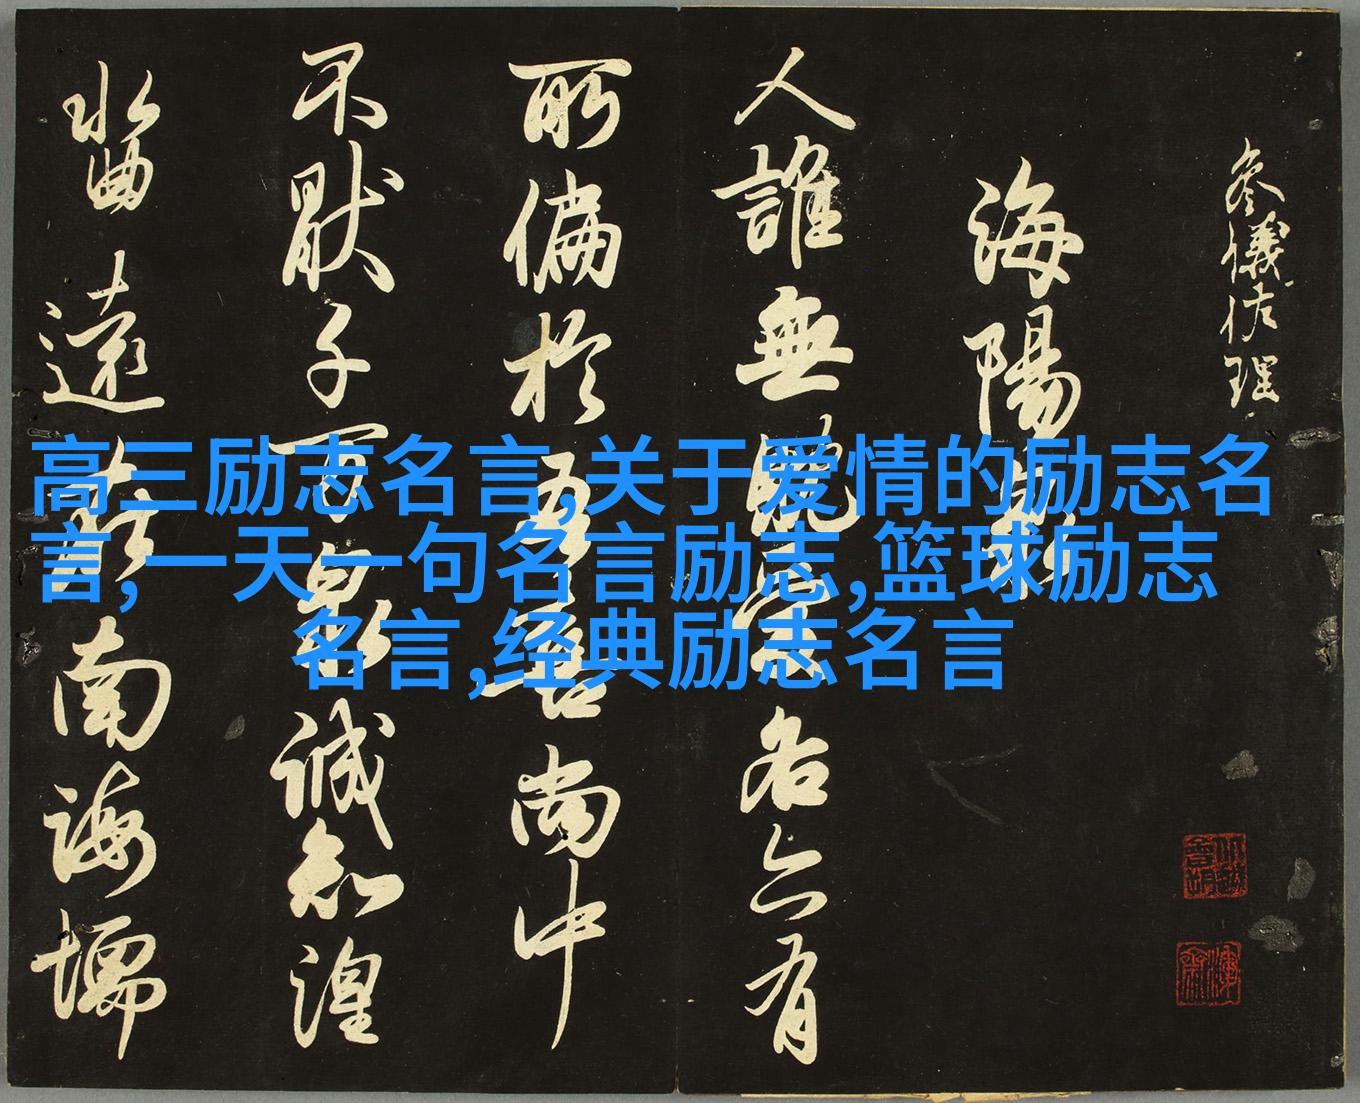 參儀佐理
海陽
人誰無各亦有
所偏於吾尚中
不厭子泉誠知湟
水曲遠南海壖
高三励志名言,关于爱情的励志名
言,一天一句名言励志,篮球励志
名言,经典励志名言